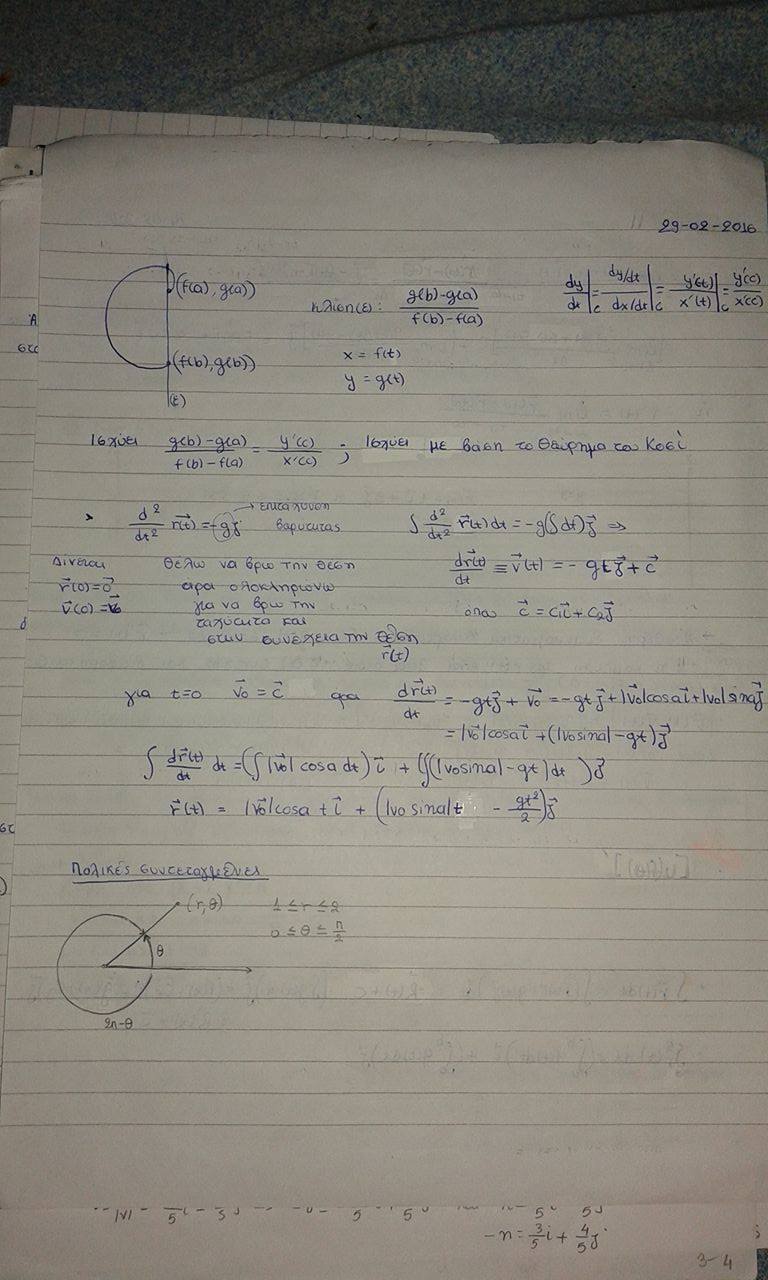 29-02-2016
(f(a), g(a))
κλίση(ε): g(b)-g(a) / f(b)-f(a)
dy/dt|c = dy/dt / dx/dt|c = y'(t) / x'(t)|c = y'(c) / x'(c)
(f(b), g(b))
x = f(t)
y = g(t)
(ε)
Ισχύει g(b)-g(a) / f(b)-f(a) = y'(c) / x'(c) ; Ισχύει με βάση το θεώρημα του Κοσί
d²/dt² r(t) = -gj⃗ → επιτάχυνση βαρύτητας
∫ d²/dt² r⃗(t) dt = -g(∫dt)j⃗ ⇒
Δίνεται
r⃗(0)=0⃗
v⃗(0)=v⃗0
θέλω να βρω την θέση
άρα ολοκληρώνω
για να βρω την
ταχύτητα και
στην συνέχεια την θέση
r⃗(t)
dr⃗(t)/dt ≡ v⃗(t) = - gtj⃗ + c⃗
όπου c⃗ = c1i⃗ + c2j⃗
για t=0 v⃗0 = c⃗ άρα dr⃗(t)/dt = -gtj⃗ + v⃗0 = -gtj⃗ + |v⃗0|cosai⃗ + |v0|sinaj⃗
= |v⃗0|cosai⃗ + (|v0sina| - gt)j⃗
∫ dr⃗(t)/dt dt = (∫|v⃗0| cosa dt)i⃗ + (∫(|v0sina| - gt)dt)j⃗
r⃗(t) = |v⃗0|cosa t i⃗ + (|v0 sina|t - gt²/2)j⃗
Πολικές συντεταγμένες
(r,θ)
1 ≤ r ≤ 2
0 ≤ θ ≤ π/2
θ
2π-θ
-n = 3/5 i + 4/5 j
3-4